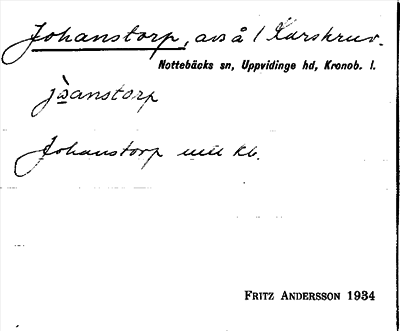 Johanstorp, avs å / Karskruv.
Nottebäcks sn, Uppvidinge hd, Kronob. l.
jòanstorp
Johanstorp utt kb.
FRITZ ANDERSSON 1934